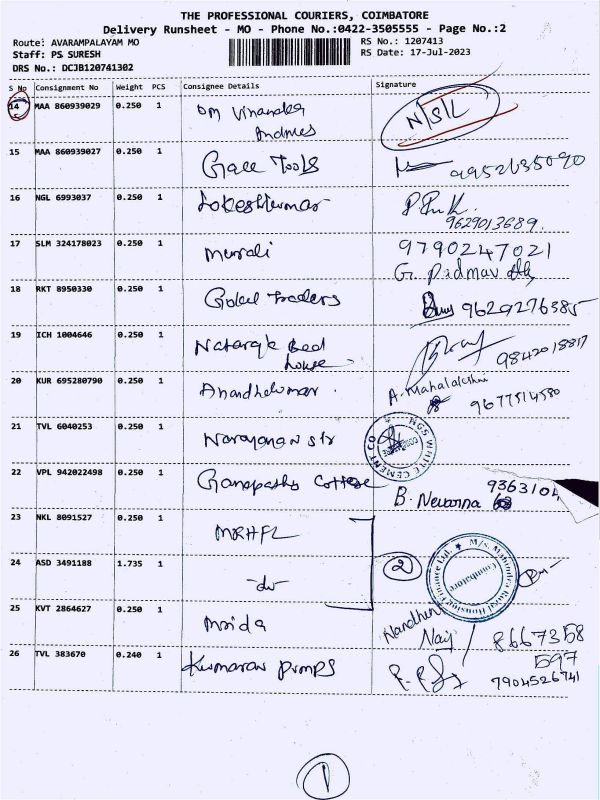 THE PROFESSIONAL COURIERS, COIMBATORE
Delivery Runsheet - MO - Phone No.:0422-3505555 - Page No.:2
Route: AVARAMPALAYAM MO RS No.: 1207413
Staff: PS SURESH RS Date: 17-Jul-2023
DRS No.: DCJB120741302
S No Consignment No Weight PCS Consignee Details Signature
14 MAA 860939029 0.250 1 Om Vinayaka N/S/L
15 MAA 860939027 0.250 1 Grace Tools
16 NGL 6993037 0.250 1 Lokeshkumar
9629013689.
17 SLM 324178023 0.250 1 Murali 9790247021
G. Padmavathy
18 RKT 8950330 0.250 1 Gokul Traders 9629276385
19 ICH 1004646 0.250 1 Nataraj Bed 9842018817
house
20 KUR 695280790 0.250 1 Anandhakumar. A. Mahalakshmi
9677514580
21 TVL 6040253 0.250 1 Narayanan str NGS WHITE CEMENT CO
22 VPL 942022498 0.250 1 Ganapathy Cottage 9363104
B.
23 NKL 8091527 0.250 1 MRHFL
24 ASD 3491188 1.735 1 -do- 2 M/s. Mahindra Rural Housing Finance Ltd. Coimbatore
25 KVT 2864627 0.250 1 8667358
597
26 TVL 383670 0.240 1 Kumaran Pumps 7904526741
1